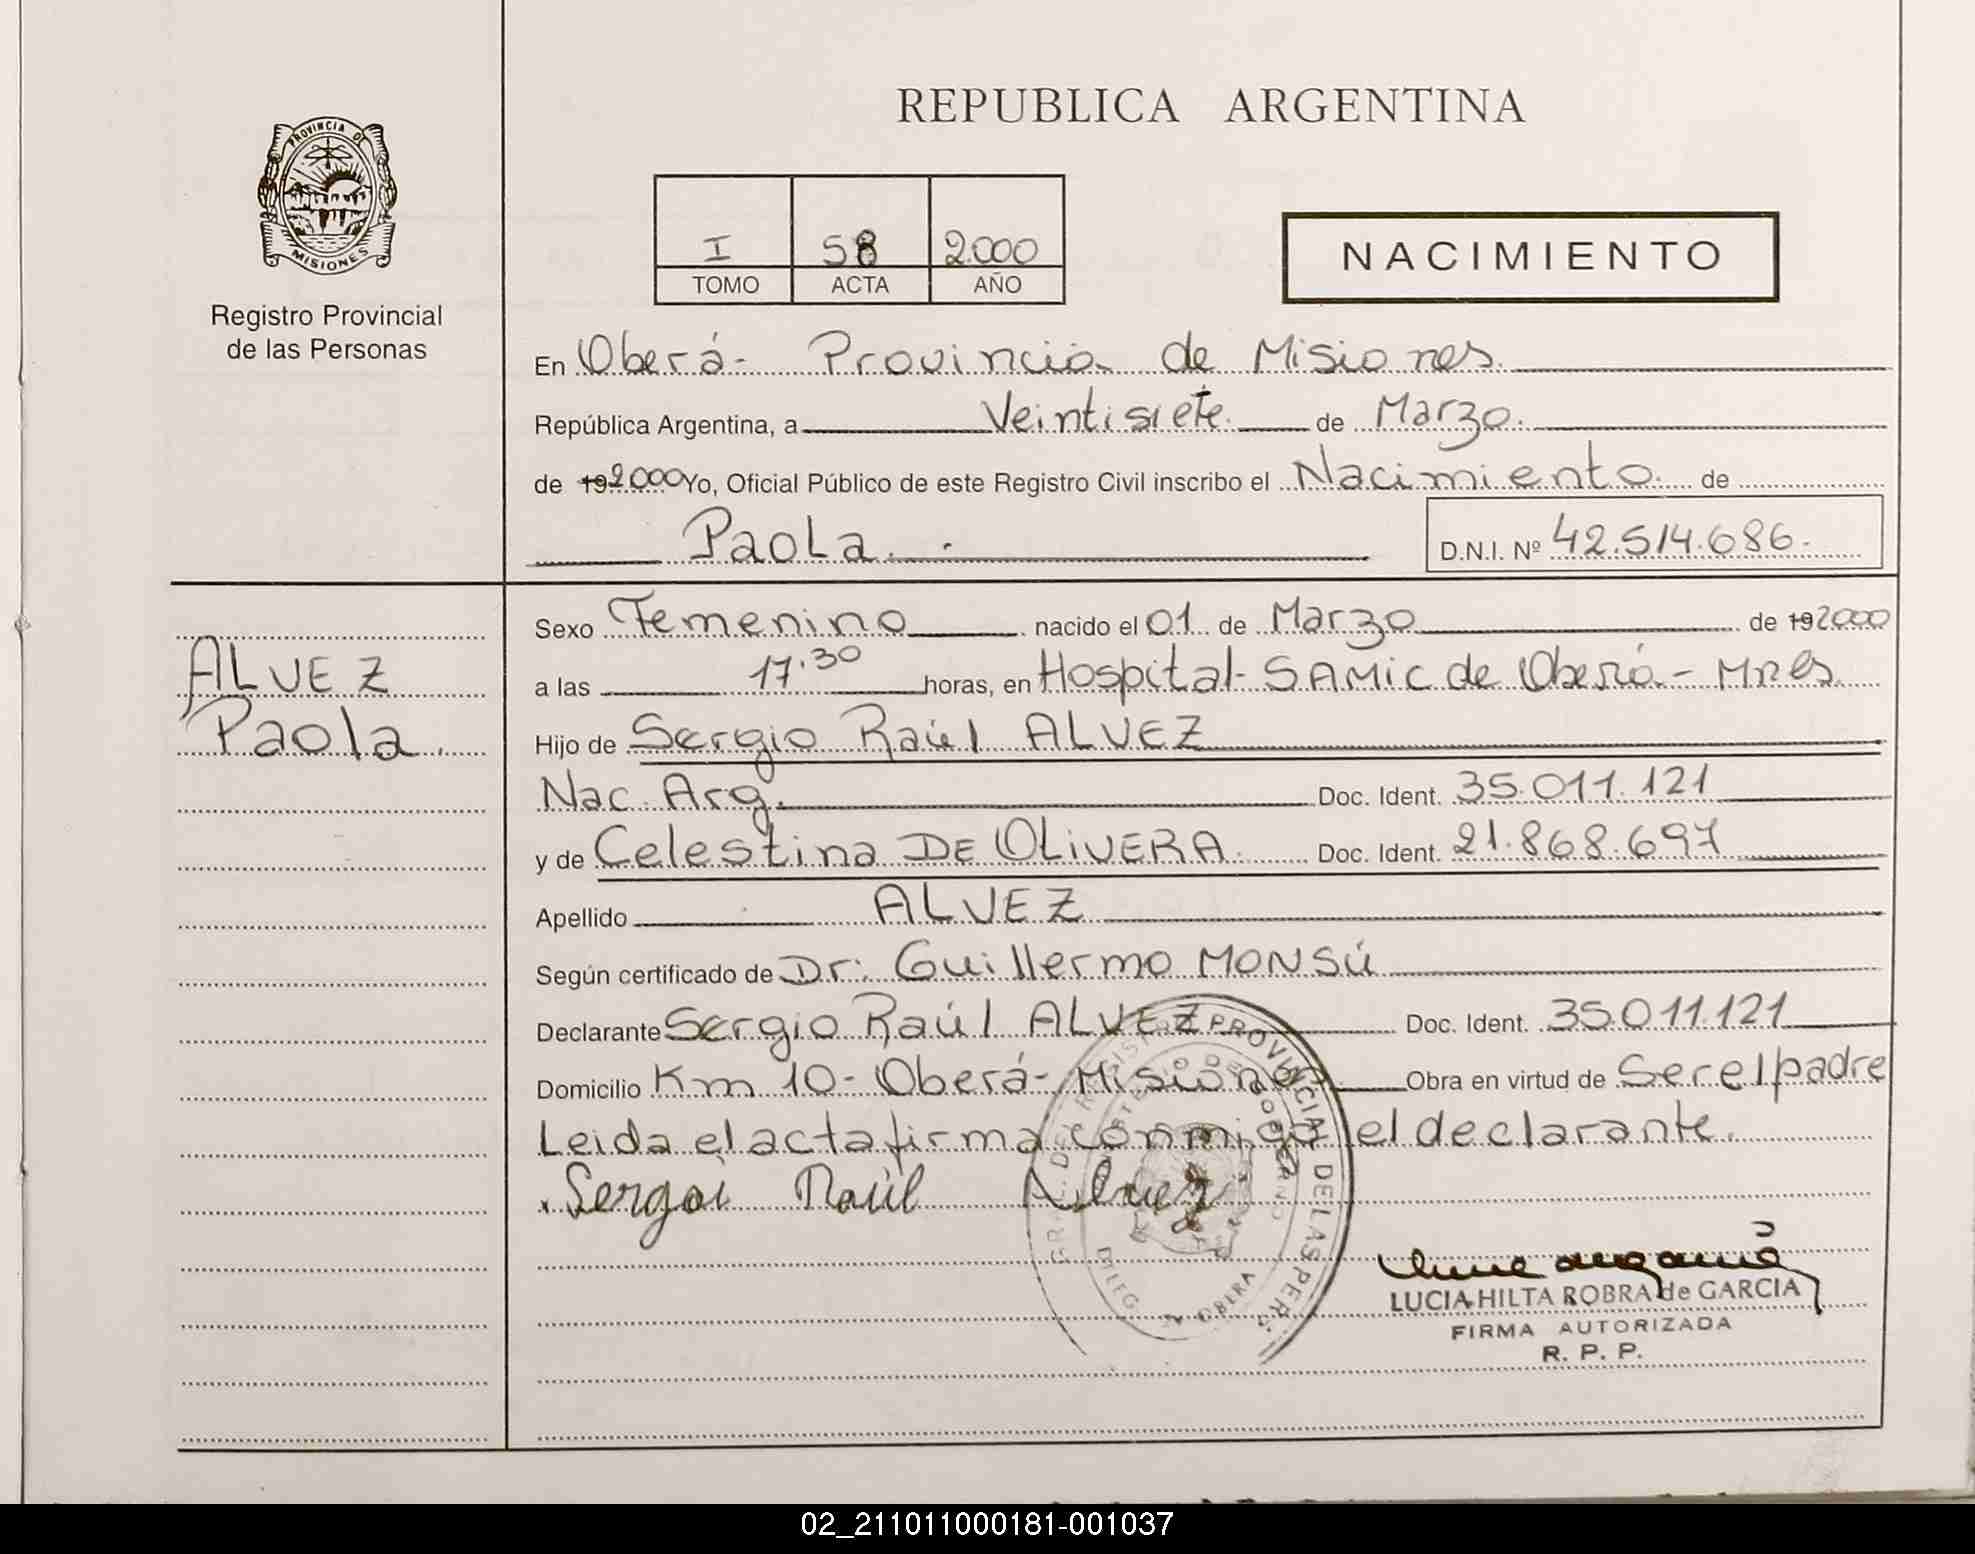 REPUBLICA ARGENTINA
PROVINCIA DE
MISIONES
Registro Provincial
de las Personas
I 58 2.000
TOMO ACTA AÑO
NACIMIENTO
En Oberá- Provincia de Misiones.
República Argentina, a Veintisiete de Marzo.
de 192000 Yo, Oficial Público de este Registro Civil inscribo el Nacimiento de
Paola. D.N.I. Nº 42.514.686.
ALVEZ
Paola.
Sexo Femenino nacido el 01 de Marzo de 192000
a las 17.30 horas, en Hospital- SAMIC de Oberá- Mnes.
Hijo de Sergio Raúl ALVEZ
Nac. Arg. Doc. Ident. 35.011.121
y de Celestina DE OLIVERA. Doc. Ident. 21.868.697
Apellido ALVEZ
Según certificado de Dr. Guillermo MONSÚ
Declarante Sergio Raúl ALVEZ Doc. Ident. 35.011.121
Domicilio Km 10- Oberá- Misiones Obra en virtud de Ser el padre
Leida el acta firma conmigo el declarante.
Sergoi Raúl Alvez
LUCIA HILTA ROBRA de GARCIA
FIRMA AUTORIZADA
R. P. P.
02_211011000181-001037